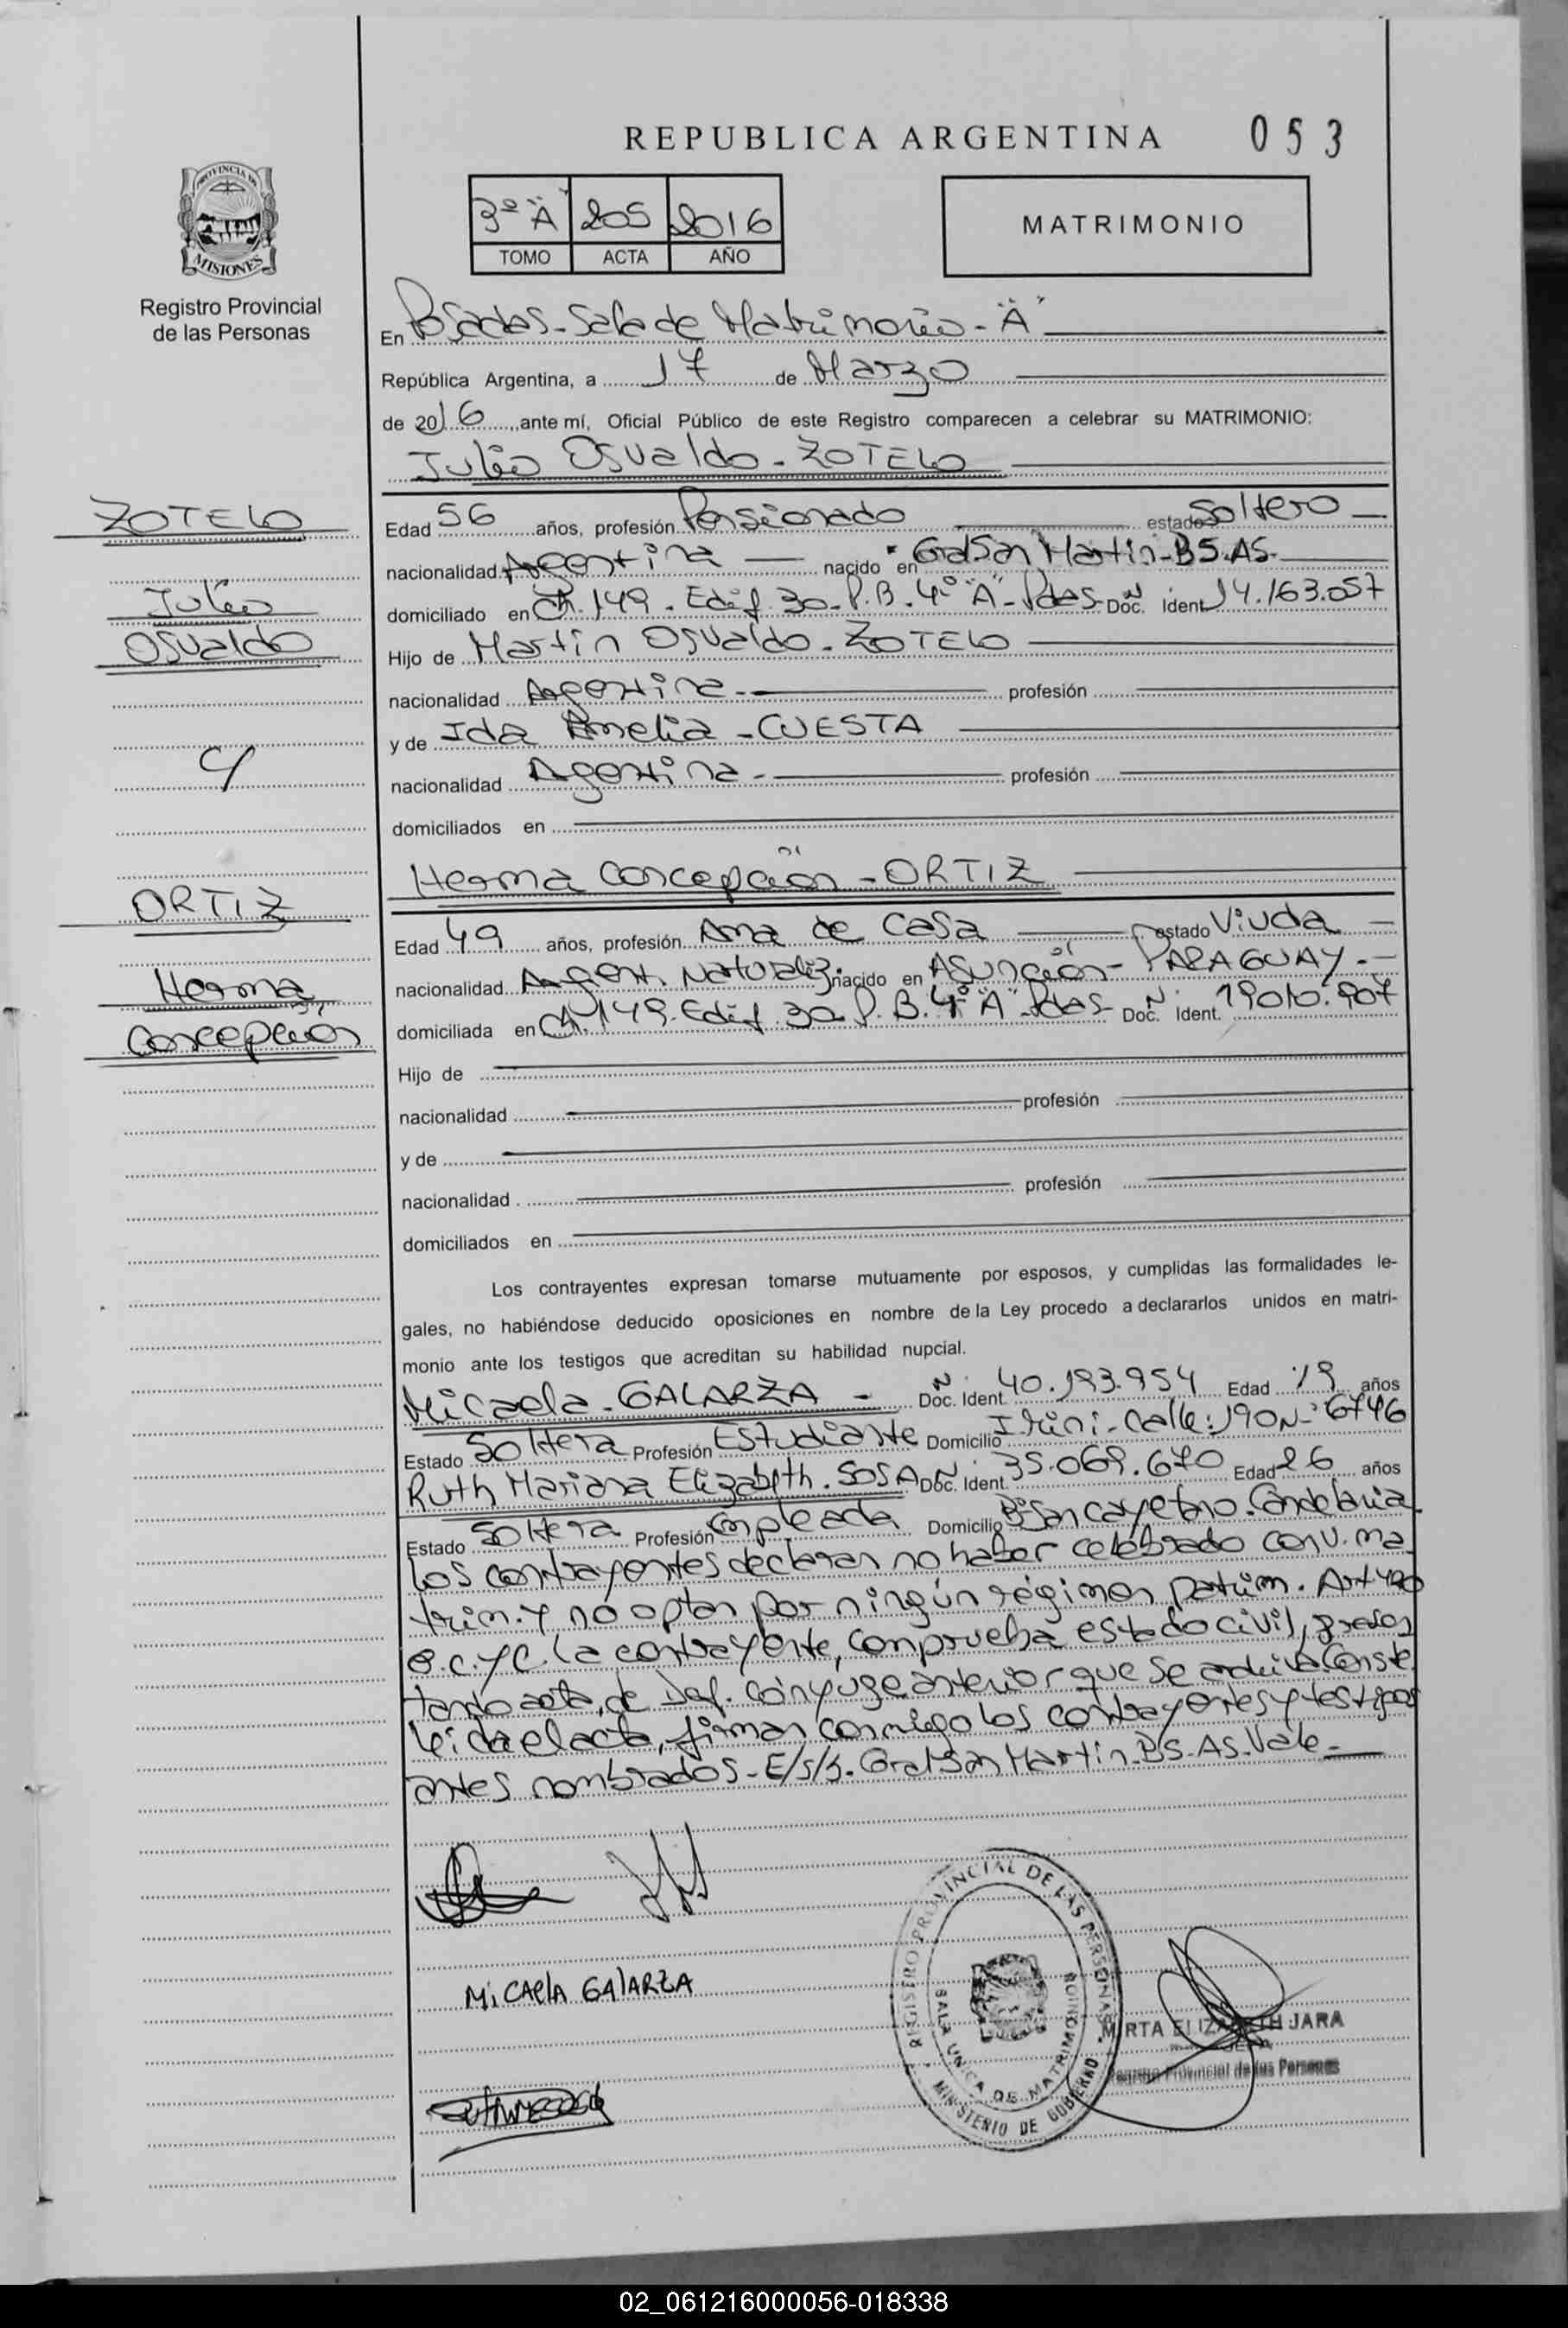 REPUBLICA ARGENTINA
053
PROVINCIA DE
MISIONES
Registro Provincial
de las Personas
3º "A" 205 2016
TOMO ACTA AÑO
MATRIMONIO
En Posadas - Sala de Matrimonio - "A"
República Argentina, a 17 de Marzo
de 2016, ante mí, Oficial Público de este Registro comparecen a celebrar su MATRIMONIO:
Julio Osvaldo - ZOTELO
ZOTELO
Julio
Osvaldo
Edad 56 años, profesión Pensionado estado Soltero
nacionalidad Argentina nacido en Gral San Martin - BS.AS.
domiciliado en Ch. 149 - Edif. 30 - P.B. 4º "A" - Pdas - Doc. Ident Nº 14.163.057
Hijo de Martin Osvaldo - ZOTELO
nacionalidad Argentina - profesión
y de Ida Amelia - CUESTA
nacionalidad Argentina - profesión
domiciliados en
c/
Herma Concepción - ORTIZ
ORTIZ
Herma
Concepción
Edad 49 años, profesión Ama de Casa estado Viuda
nacionalidad Argent. Naturaliz. nacido en Asunción - PARAGUAY.-
domiciliada en Ch. 149 - Edif. 30 P.B. 4º "A" - Pdas - Doc. Ident. Nº 19.010.907
Hijo de
nacionalidad profesión
y de
nacionalidad profesión
domiciliados en
Los contrayentes expresan tomarse mutuamente por esposos, y cumplidas las formalidades le-
gales, no habiéndose deducido oposiciones en nombre de la Ley procedo a declararlos unidos en matri-
monio ante los testigos que acreditan su habilidad nupcial.
Micaela - GALARZA - Doc. Ident Nº 40.193.954 Edad 19 años
Estado Soltera Profesión Estudiante Domicilio calle: 190 Nº 6746
Ruth Mariana Elizabeth - SOSA Doc. Ident. Nº 35.069.670 Edad 26 años
Estado Soltera Profesión Empleada Domicilio Bº San Cayetano - Candelaria
Los contrayentes declaran no haber celebrado conv. ma
trim. y no optan por ningún régimen patrim. Art 420
C.C.yC. La contrayente, comprueba estado civil, presen
tando acta de Def. cónyuge anterior que se archiva. Conste
leida el acta, firman conmigo los contrayentes y testigos
antes nombrados - E/s/r. Gral San Martin - BS - AS - Vale -
MiCAElA GAlARZA
REGISTRO PROVINCIAL DE LAS PERSONAS
SALA UNICA DE MATRIMONIOS
MINISTERIO DE GOBIERNO
MIRTA ELIZABETH JARA
Registro Provincial de las Personas
02_061216000056-018338